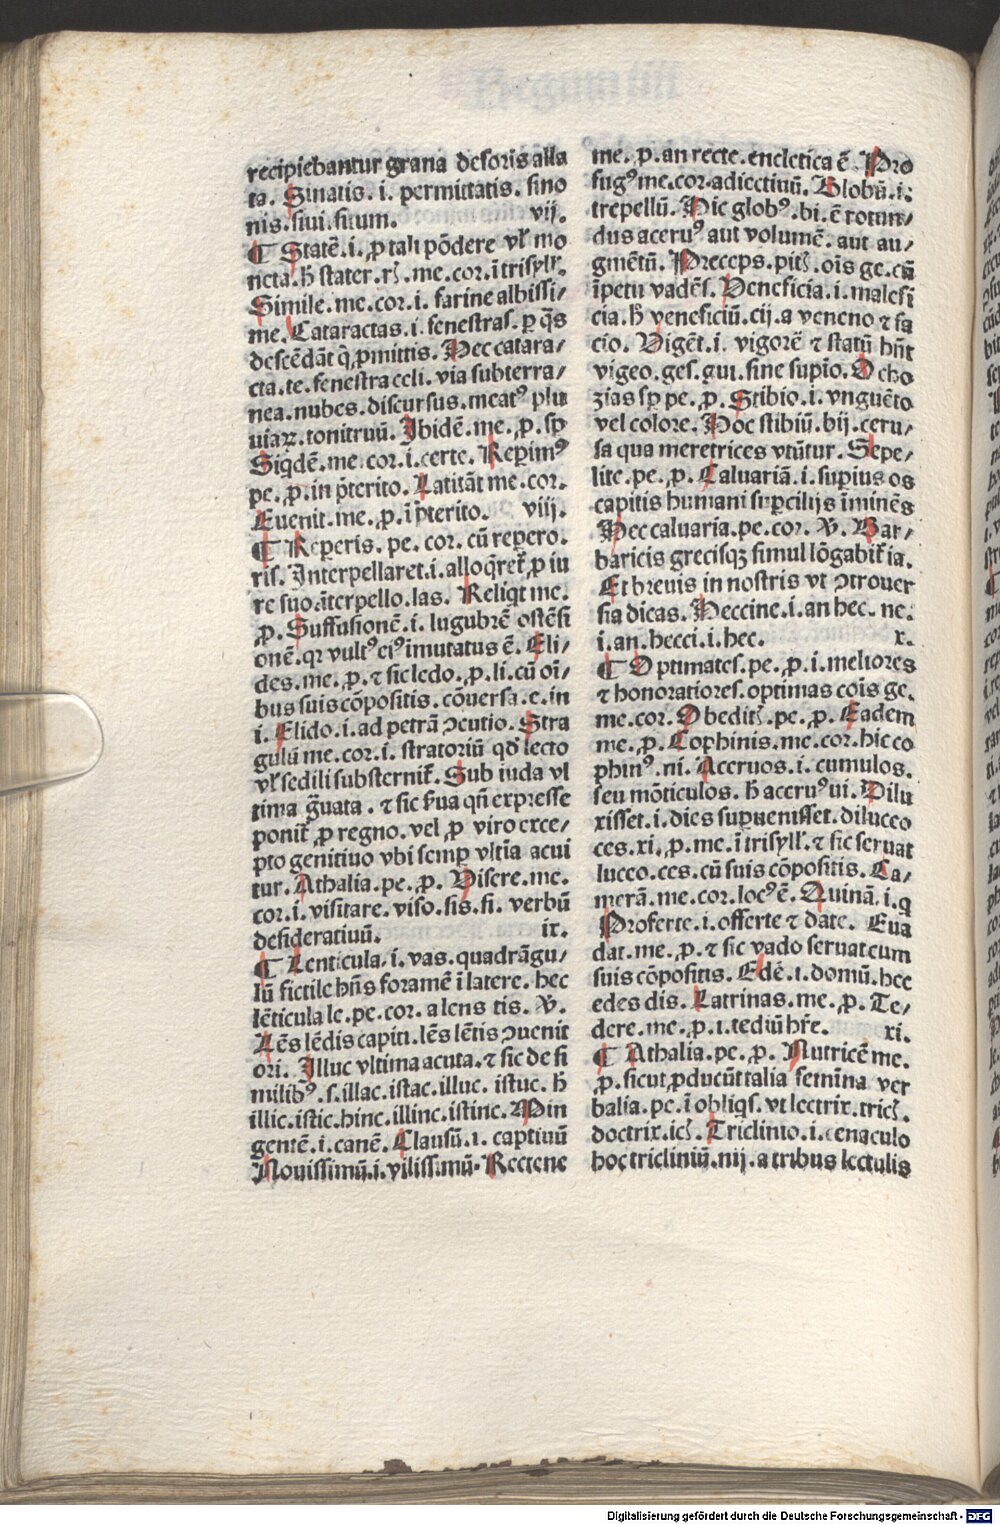 recipiebantur grana deforis alla
ta. Sinatis. i. permittatis. sino
nis. siui. situm. vij.
¶ Statē. i. ꝓ tali pōdere vł mo
neta. h̄ stater. rꝭ. me. cor. ī trisyłł.
Simile. me. cor. i. farine albissi/
me. Cataractas. i. fenestras. ꝑ q̄s
descēdāt q̄ ꝓmittis. Hec catara/
cta. te. fenestra celi. via subterra/
nea. nubes. discursus. meatꝰ plu
uiaꝝ. tonitruū. Ibidē. me. ꝓ. sp̄
Siq̇dē. me. cor. i. certe. Reꝑimꝰ
pe. ꝓ. in p̄terito. Latitāt me. cor.
Euenit. me. ꝓ. ī p̄terito. viij.
¶ Reꝑeris. pe. cor. cū reꝑero.
ris. Interpellaret. i. alloq̄ret̄ ꝓ iu
re suo. īterpello. las. Reliq̇t me.
ꝓ. Suffusionē. i. lugubrē ostēsi
onē. qꝛ vultꝰ eiꝰ imutatus ē. Eli/
des. me. ꝓ. ⁊ sic ledo. ꝓ. li. cū oī/
bus suis cōpositis. cōuersa. e. in
i. Elido. i. ad petrā ↄcutio. Stra
gulū me. cor. i. stratoriū qd̄ lecto
vł sedili substernit̄. Sub iuda vl
tima g̃uata. ⁊ sic ẜua qn̄ expresse
ponit̄ ꝓ regno. vel ꝓ viro exce/
pto genitiuo vbi semꝑ vltīa acui
tur. Athalia. pe. ꝓ. Visere. me.
cor. i. visitare. viso. sis. si. verbū
desideratiuū. ix.
¶ Lenticula. i. vas. quadrāgu/
lū fictile hn̄s foramē ī latere. hec
lēticula le. pe. cor. a lens tis. V̄.
Lēs lēdis capiti. lēs lētis ↄuenit
ori. Illuc vltima acuta. ⁊ sic de si
milibꝰ. s. illac. istac. illuc. istuc. h̄
illic. istic. hinc. illinc. istinc. Min
gentē. i. canē. Clausū. i. captiuū
Nouissimū. i. vilissimū. Rectene
me. ꝓ. an recte. encletica ē. Pro
fugꝰ me. cor. adiectiuū. Globū. i.
trepellū. Hic globꝰ. bi. ē rotun/
dus aceruꝰ aut volumē. aut au/
gmētū. Preceps. pitꝭ. oīs ge. cū
īpetu vadēs. Veneficia. i. malefi
cia. h̄ veneficiū. cij. a veneno ⁊ fa
cio. Vigēt. i. vigorē ⁊ statū hn̄t
vigeo. ges. gui. sine supīo. Ocho
zias sꝑ pe. ꝓ. Stibio. i. vnguēto
vel colore. Hoc stibiū. bij. ceru/
sa qua meretrices vtūtur. Sepe/
lite. pe. ꝓ. Caluariā. i. suꝑius os
capitis humani suꝑcilijs īminēs
Hec caluaria. pe. cor. V̄. Bar/
baricis grecisqꝫ simul lōgabit̄ ia.
Et breuis in nostris vt ↄtrouer
sia dicas. Heccine. i. an hec. ne.
i. an. hecci. i. hec. x.
¶ Optimates. pe. ꝓ. i. meliores
⁊ honoratiores. optimas cōis ge.
me. cor. Obeditꝭ. pe. ꝓ. Eadem
me. ꝓ. Cophinis. me. cor. hic co
phinꝰ. ni. Aceruos. i. cumulos.
seu mōticulos. h̄ aceruꝰ ui. Dilu
xisset. i. dies suꝑuenisset. diluceo
ces. xi. ꝓ. me. ī trisyłł. ⁊ sic seruat
lucco. ces. cū suis cōpositis. Ca/
merā. me. cor. locꝰ ē. Quinā. i. q
Proferte. i. offerte ⁊ date. Eua
dat. me. ꝓ. ⁊ sic vado seruat cum
suis cōpositis. Edē. i. domū. hec
edes dis. Latrinas. me. ꝓ. Te/
dere. me. ꝓ. i. tediū hr̄e. xi.
¶ Athalia. pe. ꝓ. Nutricē me.
ꝓ. sicut ꝓducūt talia femīna ver
balia. pe. ī obliqs. vt lectrix. tricꝭ.
doctrix. icꝭ. Triclinio. i. cenaculo
hoc tricliniū. nij. a tribus lectulis
Digitalisierung gefördert durch die Deutsche Forschungsgemeinschaft - DFG